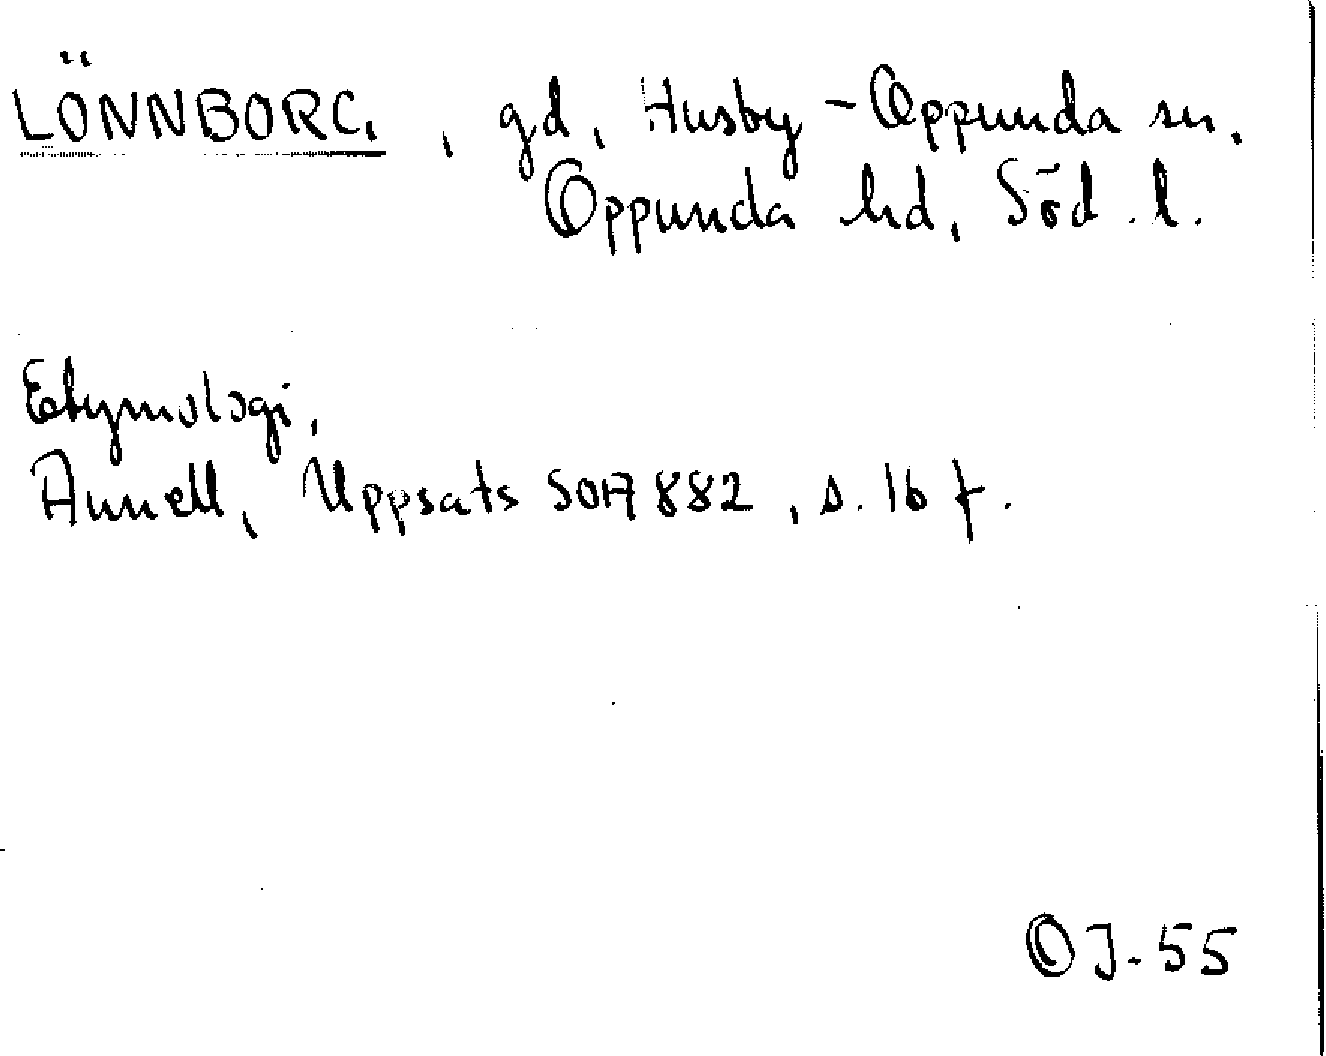 LÖNNBORG, gd, Husby-Oppunda sn.
Oppunda hd, Söd. l.
Etymologi,
Annell, Uppsats SOA 882, s. 16 f.
OJ-55